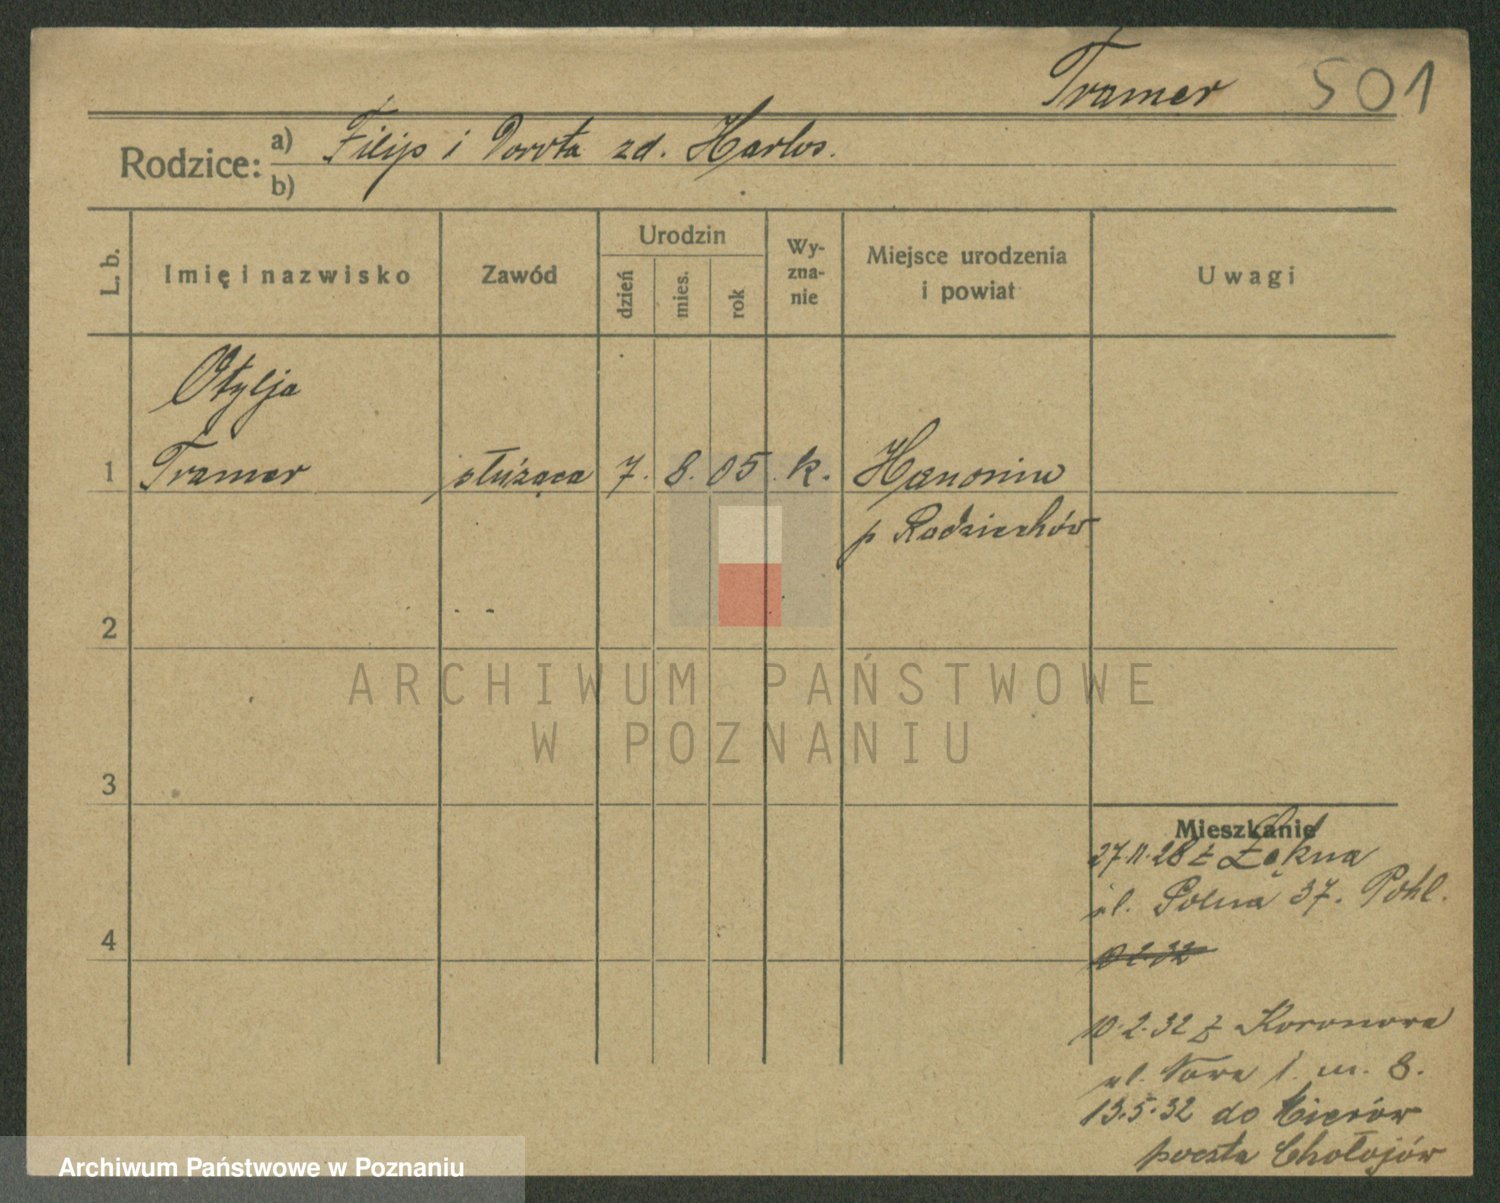 Tramer 501
Rodzice: a) Filip i Dorota zd. Harlos.
b)
L. b.
Imię i nazwisko
Zawód
Urodzin
dzień
mies.
rok
Wy-
zna-
nie
Miejsce urodzenia
i powiat
Uwagi
Otylja
1 Tramer służąca 7. 8. 05. k. Hanonin
p Radziechów
2
ARCHIWUM PAŃSTWOWE
W POZNANIU
3
Mieszkanie
27.11.28 z Łękna
ul. Polna 37. Pohl.
4
10 2 32
10.2.32 z Koronowa
ul. Nowa 1. m. 8.
13.5.32 do
poczta Chołojów
Archiwum Państwowe w Poznaniu